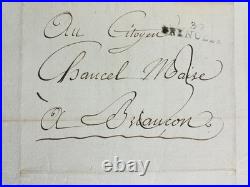 Au Citoyen
37
GRENOBLE
Chancel Maire
à Briançon